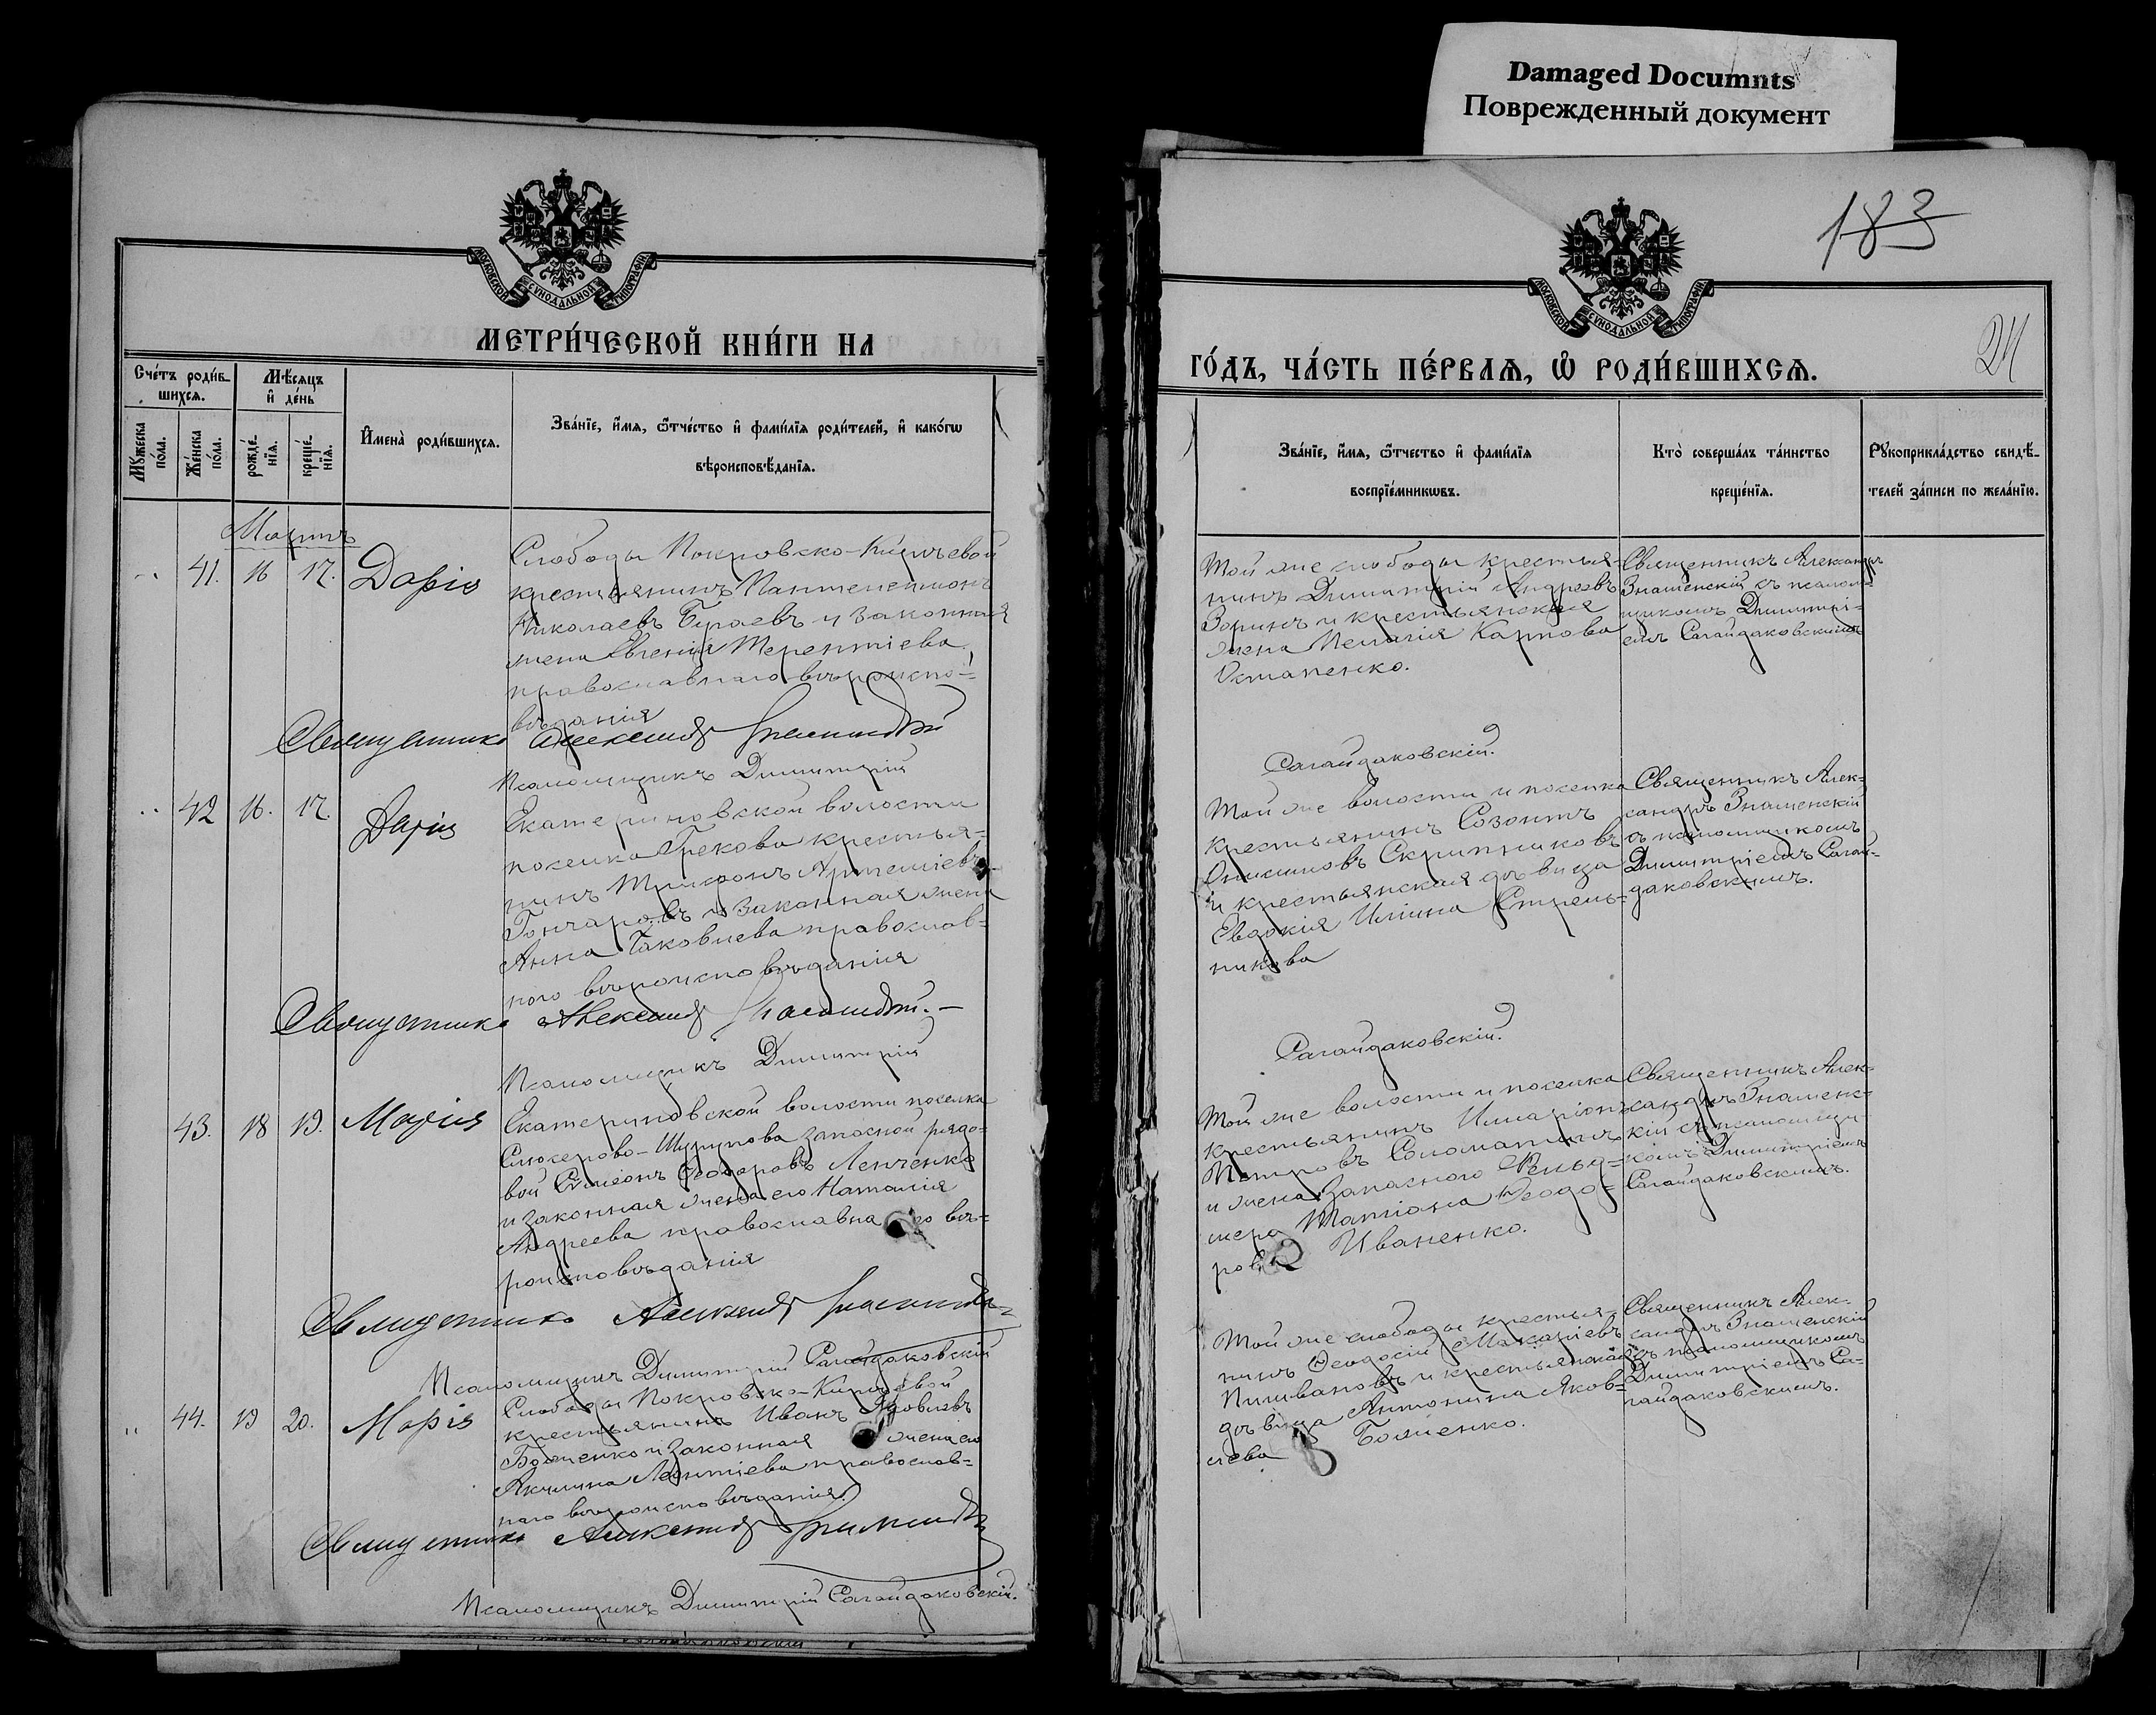 Damaged Documnts
Поврежденный документ
183
МОСКОВСКОЙ СѴНОДАЛЬНОЙ ТИПОГРАФІИ
МЕТРИ́ЧЕСКОЙ КНИ́ГИ НА
Сче́тъ роди́в-
шихсѧ.
Мѣ́сѧцъ
и҆ де́нь
Мꙋ́жеска
по́ла.
Же́нска
по́ла.
рожде́-
нїѧ.
креще́-
нїѧ.
И҆мена̀ роди́вшихсѧ.
Зва́нїе, и҆́мѧ, ѻ҆́тчество и҆ фами́лїѧ роди́телей, и҆ како́гѡ
вѣроисповѣ́данїѧ.
Мартъ
41. 16 17. Дарія
Слободы Покровско-Кирѣевой
крестьянинъ Пантелеимонъ
Николаевъ Бураевъ и законная
жена Евгенія Терентіева,
православнаго вѣроиспо-
вѣданія
Священникъ Александръ Знаменскій
Псаломщикъ Димитрій
42 16. 17. Дарія
Екатериновской волости
поселка Грекова крестья-
нинъ Трифонъ Артеміевъ
Гончаровъ и законная жена
Анна Яковлева православ-
наго вѣроисповѣданія
Священникъ Александръ Знаменскій.
Псаломщикъ Димитрій
43. 18 19. Марія
Екатериновской волости поселка
запасной рядо-
вой Симеонъ Ѳеодоровъ Левченко
и законная жена его Наталія
Андреева православнаго вѣ-
роисповѣданія
Священникъ Александръ Знаменскій
Псаломщикъ Димитрій Сагайдаковскій
44. 19 20. Марія
Слободы Покровско-Кирѣевой
крестьянинъ Иванъ Яковлевъ
Боженко и законная жена его
Акилина Леонтіева православ-
наго вѣроисповѣданія.
Священникъ Александръ Знаменскій
Псаломщикъ Димитрій Сагайдаковскій.
МОСКОВСКОЙ СѴНОДАЛЬНОЙ ТИПОГРАФІИ
ГО́ДЪ, ЧА́СТЬ ПЕ́РВАѦ, Ѡ҆ РОДИ́ВШИХСѦ.
Зва́нїе, и҆́мѧ, ѻ҆́тчество и҆ фами́лїѧ
воспрїе́мникѡвъ.
Кто̀ соверша́лъ та́инство
креще́нїѧ.
Рꙋкоприкла́дство свидѣ́-
телей за́писи по жела́нїю.
Той же слободы крестья-
нинъ Димитрій Андреевъ
Зоринъ и крестьянская
жена Пелагія Карпова
Остапенко.
Священникъ Александръ
Знаменскій съ псалом-
щикомъ Димитрі-
емъ Сагайдаковскимъ
Сагайдаковскій.
Той же волости и поселка
крестьянинъ Созонтъ
Онисимовъ Скрипниковъ
и крестьянская дѣвица
Евдокія Иліина Стрель-
никова
Священникъ Алек-
сандръ Знаменскій
съ псаломщикомъ
Димитріемъ Сагай-
даковскимъ.
Сагайдаковскій.
Той же волости и поселка
крестьянинъ Иларіонъ
Петровъ Соломатинъ
и жена запаснаго фельд-
шера Татіана Ѳеодо-
рова Иваненко.
Священникъ Алек-
сандръ Знаменс-
кій съ псаломщи-
комъ Димитріемъ
Сагайдаковскимъ.
Той же слободы крестья-
нинъ Ѳеодосій Макаріевъ
Пиливановъ и крестьянская
дѣвица Антонина Яков-
лева Боженко.
Священникъ Алек-
сандръ Знаменскій
съ псаломщикомъ
Димитріемъ Са-
гайдаковскимъ.